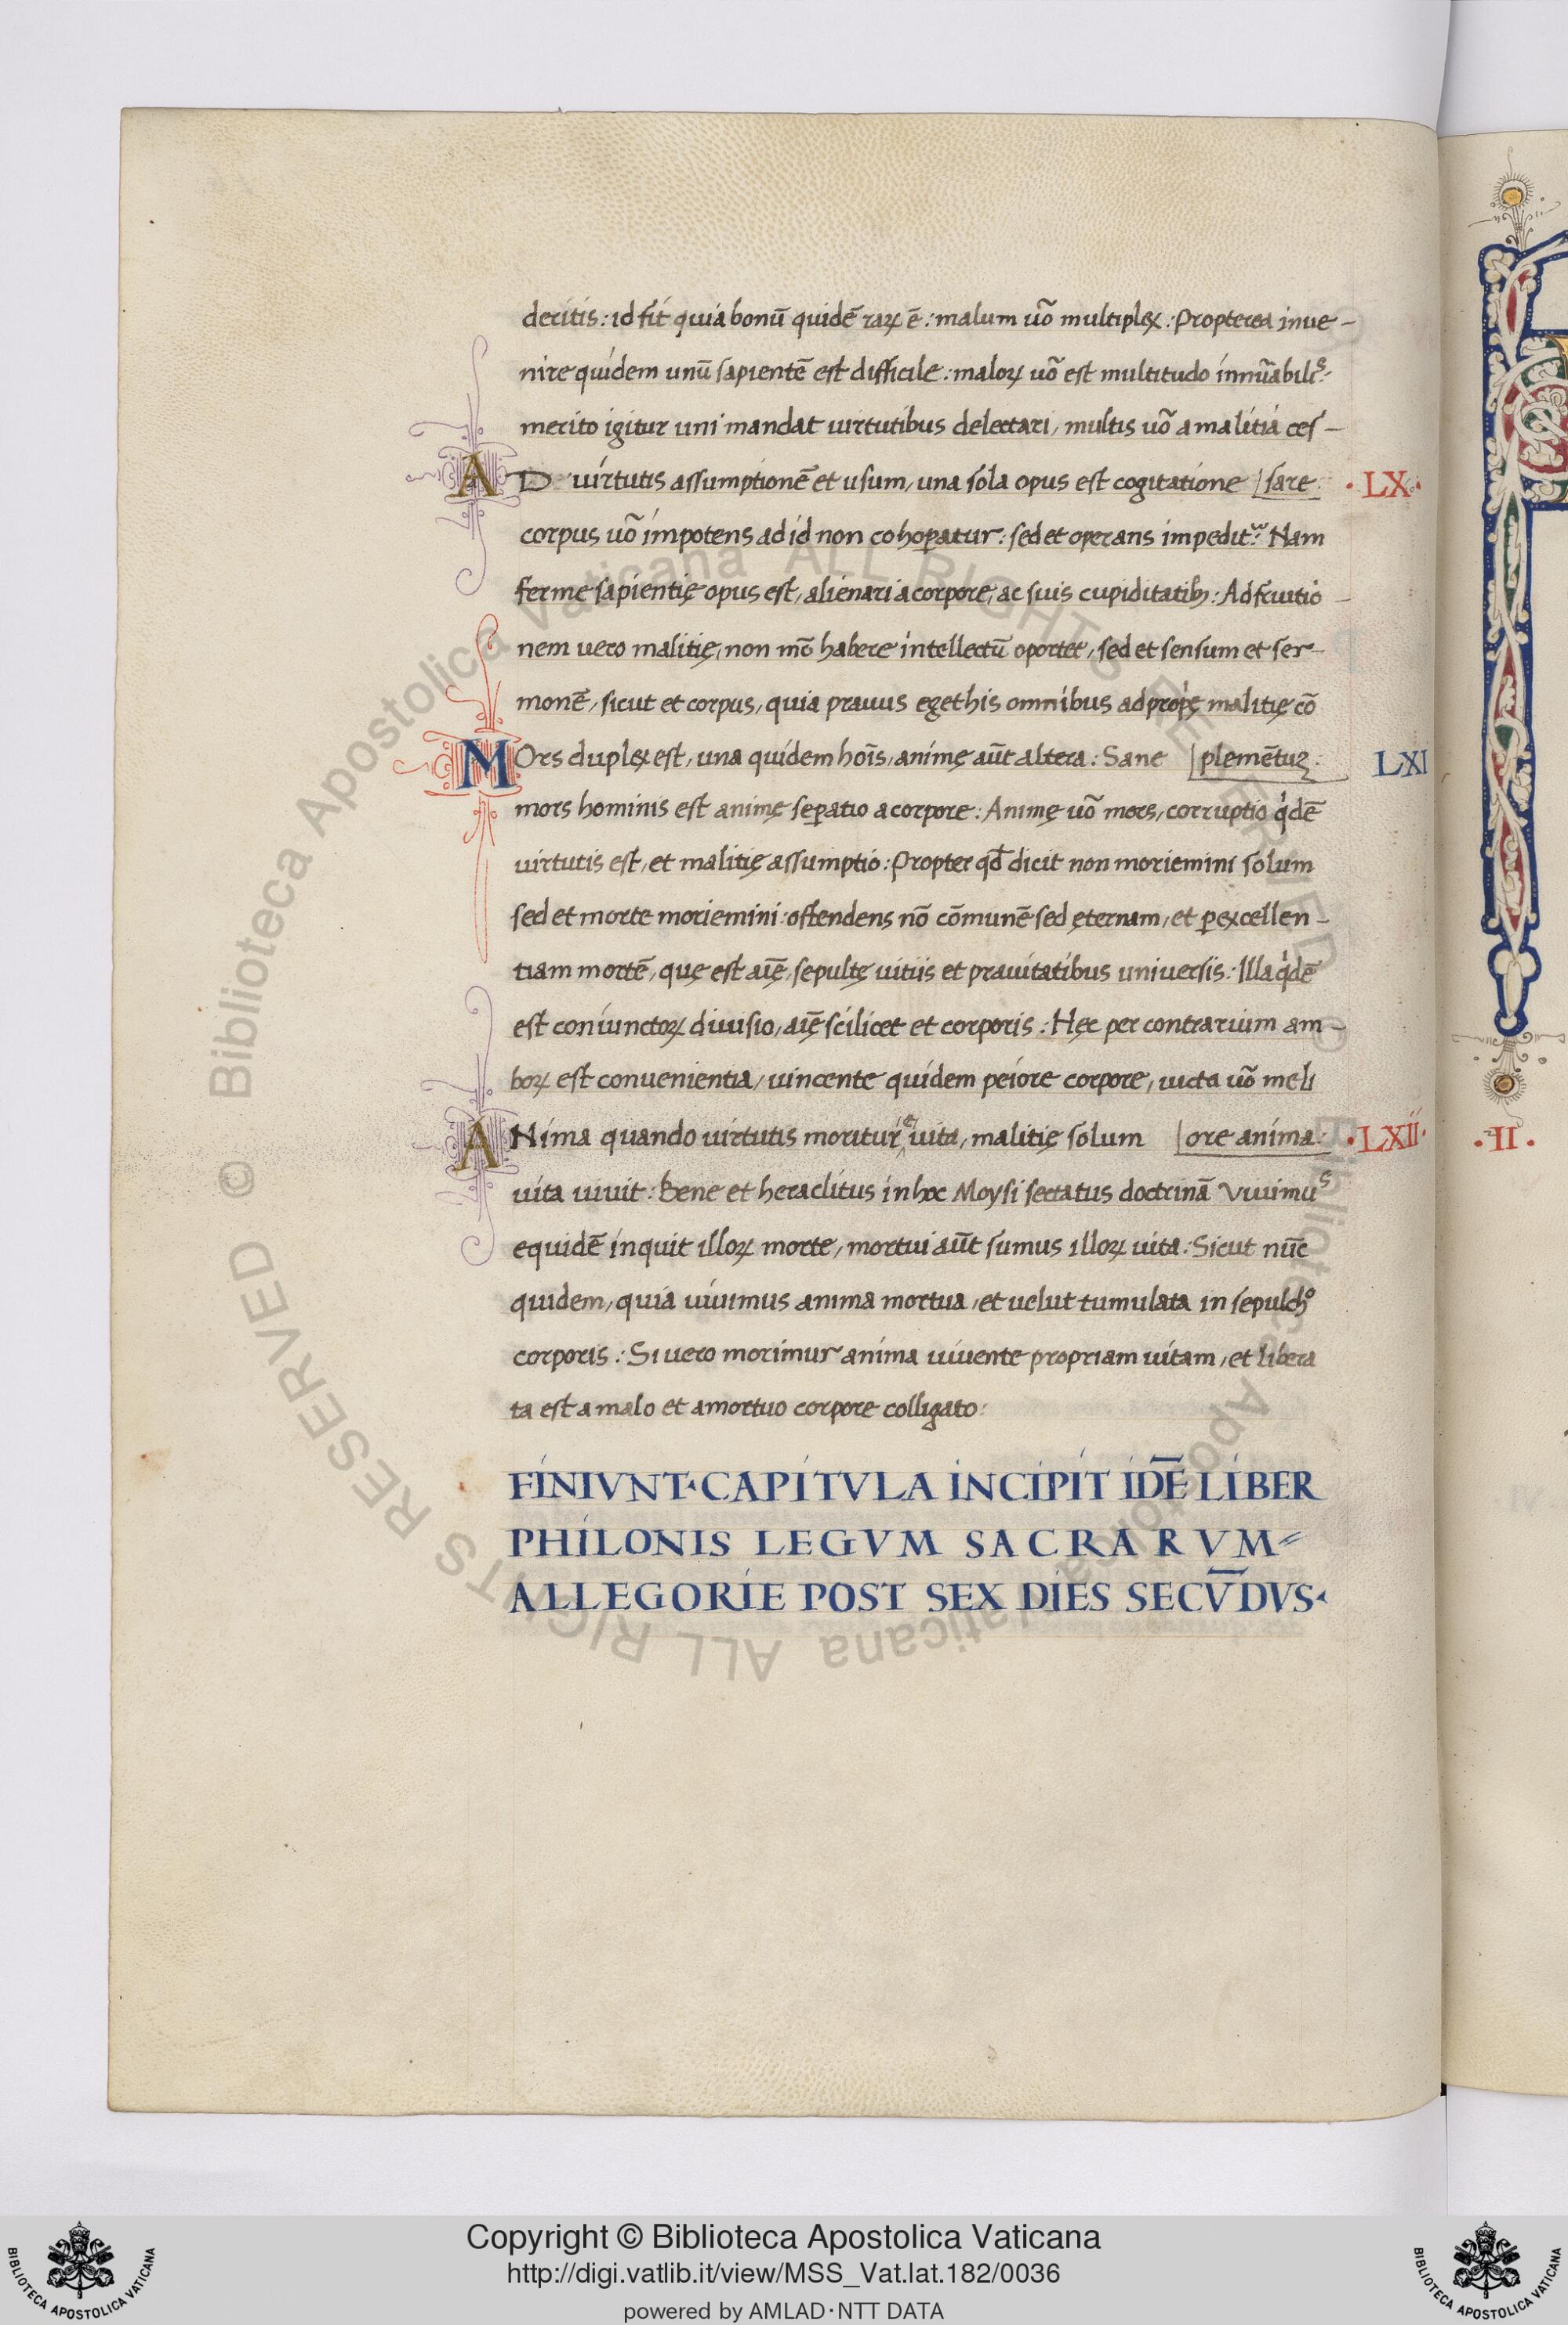 deritis: id fit quia bonū quidē raꝝ ē: malum uō multiplex: Propterea inue-
nire quidem unū sapientē est difficile: maloꝝ uō est multitudo innūabilis:
merito igitur uni mandat uirtutibus delectari, multis uō a malitia ces-
AD uirtutis assumptionē et usum, una sola opus est cogitatione sare. ·LX·
corpus uō impotens ad id non cohoꝑatur: sed et operans impedit: Nam
ferme sapientię opus est, alienari a corpore, ac suis cupiditatibꝫ: Ad fruitio-
nem uero malitię, non mō habere intellectū oportet, sed et sensum et ser-
monē, sicut et corpus, quia prauus eget his omnibus ad propę malitię cō
MOrs duplex est, una quidem hoīs, animę aūt altera: Sane plemētuꝝ. LXI
mors hominis est animę seꝑatio a corpore: Animę uō mors, corruptio qdē
uirtutis est, et malitię assumptio: Propter qd̄ dicit non moriemini solum
sed et morte moriemini: ostendens nō cōmunē sed ęternam, et ꝑ excellen-
tiam mortē, que est aīę, sepultę uitiis et prauitatibus uniuersis: Illa qdē
est coniunctoꝝ diuisio, aīę scilicet et corporis: Hęc per contrarium am-
boꝝ est conuenientia, uincente quidem peiore corpore, uicta uō meli
ANima quando uirtutis moritur uita, malitię solum ore anima: ·LXII·
uita uiuit: Bene et heraclitus in hoc Moysi sectatus doctrinā Viuimus
equidē inquit illoꝝ morte, mortui aūt sumus illoꝝ uita: Sicut nūc
quidem, quia uiuimus anima mortua, et uelut tumulata in sepulchº
corporis: Si uero morimur anima uiuente propriam uitam, et libera
ta est a malo et a mortuo corpore colligato:
FINIVNT·CAPITVLA INCIPIT IDĒ LIBER
PHILONIS LEGVM SACRARVM
ALLEGORIE POST SEX DIES SECV̄DVS·
·II·
© Biblioteca Apostolica Vaticana ALL RIGHTS RESERVED © Biblioteca Apostolica Vaticana ALL RIGHTS RESERVED
Copyright © Biblioteca Apostolica Vaticana
http://digi.vatlib.it/view/MSS_Vat.lat.182/0036
powered by AMLAD·NTT DATA
BIBLIOTECA APOSTOLICA VATICANA
BIBLIOTECA APOSTOLICA VATICANA